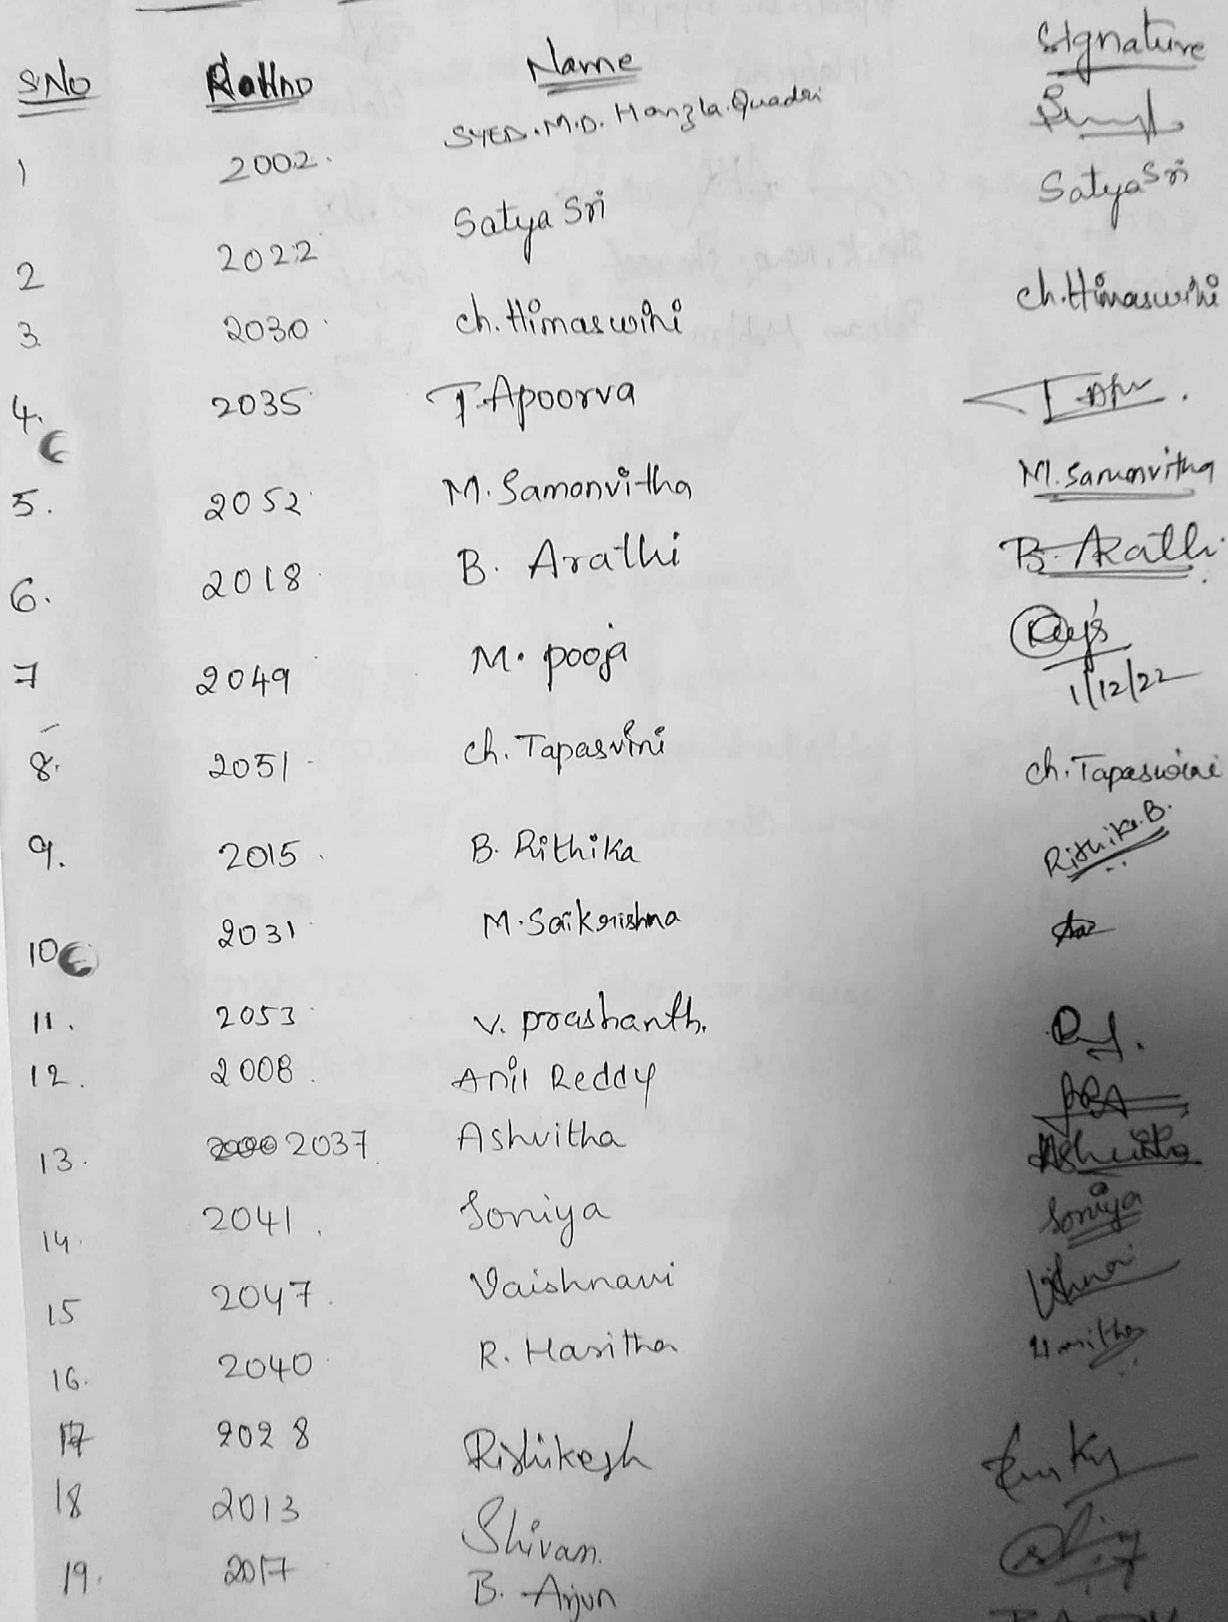 S.No Rollno Name Signature
1 2002. SYED.M.D. Hanzla.Quadri
2 2022 Satya Sri Satya Sri
3. 2030 ch. Himaswini ch. Himaswini
4. 2035 T. Apoorva
5. 2052 M. Samanvitha M. Samanvitha
6. 2018 B. Arathi B. Arathi
7 2049 M. pooja 1/12/22
8. 2051 ch. Tapasvini ch. Tapaswini
9. 2015 B. Rithika Rithika.B.
10 2031 M. Saikrishna
11. 2053 V. prashanth.
12. 2008. Anil Reddy
13. 2037 Ashvitha Ashvitha
14. 2041. Soniya Soniya
15 2047. Vaishnavi
16. 2040 R. Haritha Haritha
17 2028 Rishikesh
18 2013 Shivam.
19. 2017 B. Arjun